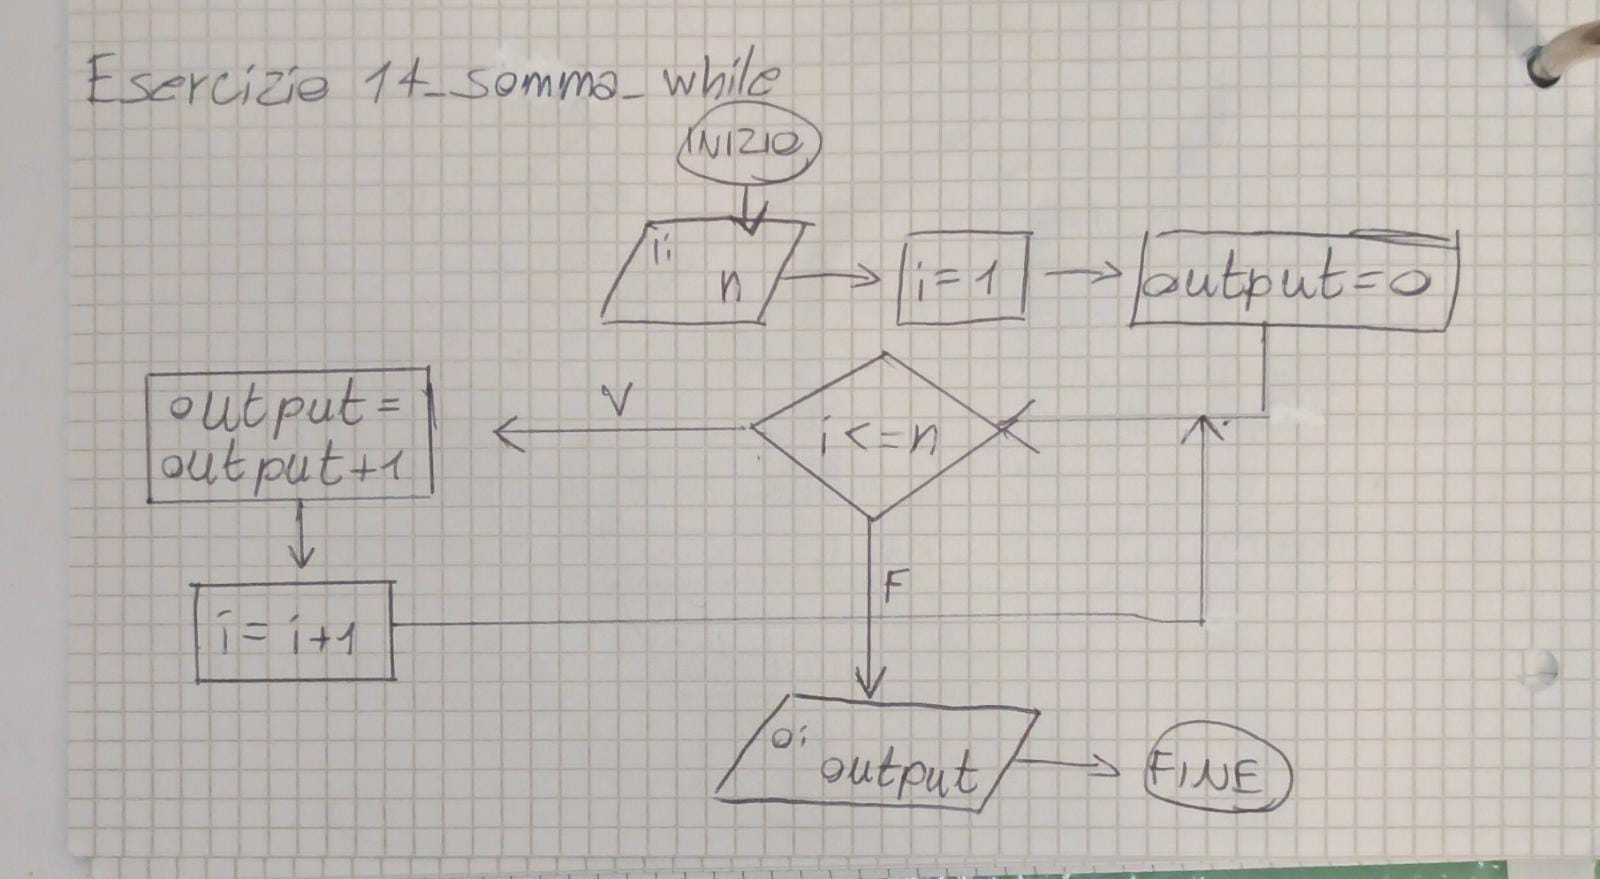 Esercizio 14_somma_while
INIZIO
I:
n
i=1
output=0
output=
output+1
V
i<=n
F
i=i+1
O:
output
FINE